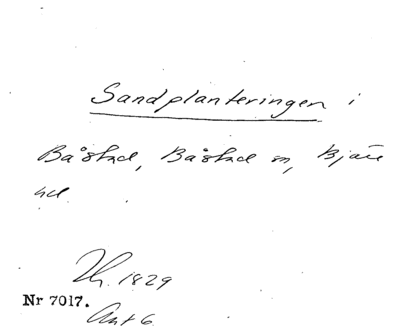 Sandplanteringen i
Båstad, Båstad sn, Bjäre
hd
Th. 1829
Nr 7017.
Ant 6